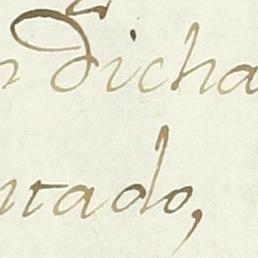 dicha
ntado,